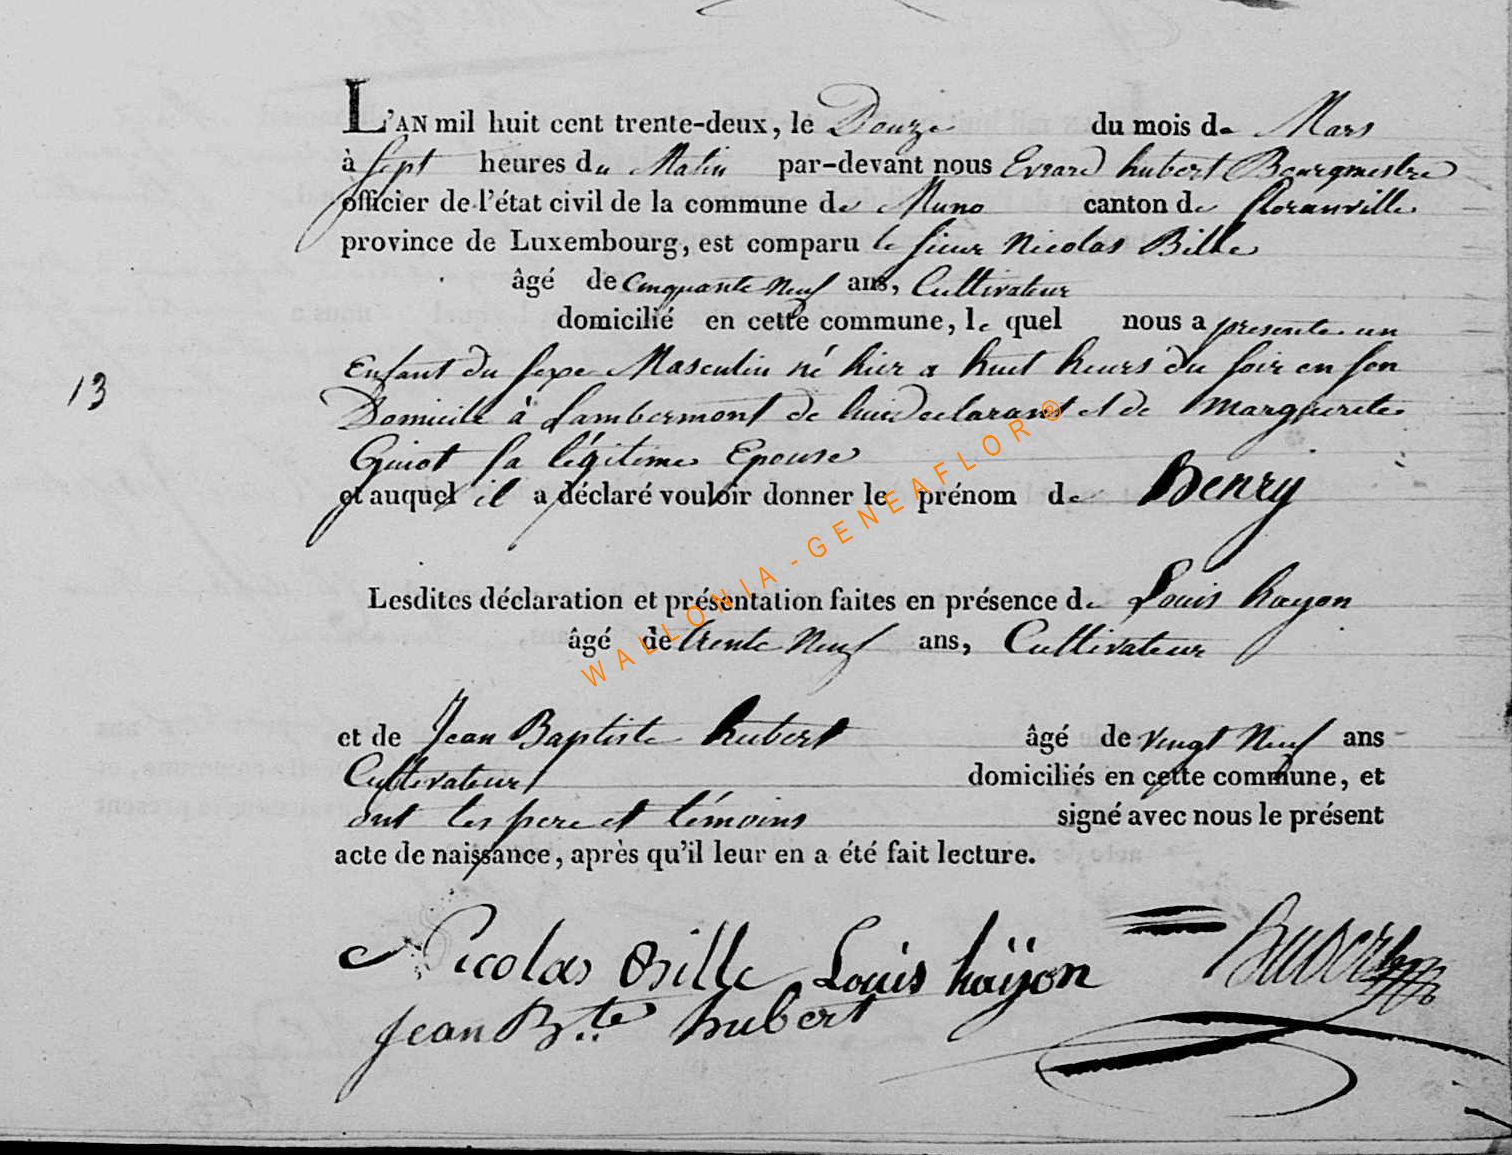 L'AN mil huit cent trente-deux, le Douze du mois de Mars
à sept heures du Matin par-devant nous Evrard hubert Bourgmestre
officier de l'état civil de la commune de Muno canton de floranville
province de Luxembourg, est comparu le sieur Nicolas Bille
âgé de Cinquante Neuf ans, Cultivateur
domicilié en cette commune, le quel nous a presente un
Enfant du sexe Masculin né hier a huit heurs du soir en son
13
Domicile à Lambermont de lui declarant et de Marguerite
Guiot sa légitime Epouse
et auquel il a déclaré vouloir donner le prénom de Henry
Lesdites déclaration et présentation faites en présence de Louis hayon
âgé de trente Neuf ans, Cultivateur
et de Jean Baptiste hubert âgé de vingt Neuf ans
Cultivateur domiciliés en cette commune, et
ont les pere et témoins signé avec nous le présent
acte de naissance, après qu'il leur en a été fait lecture.
Nicolas Bille Louis haÿon hubert
Jean Bte hubert
WALLONIA - GENEAFLOR ®